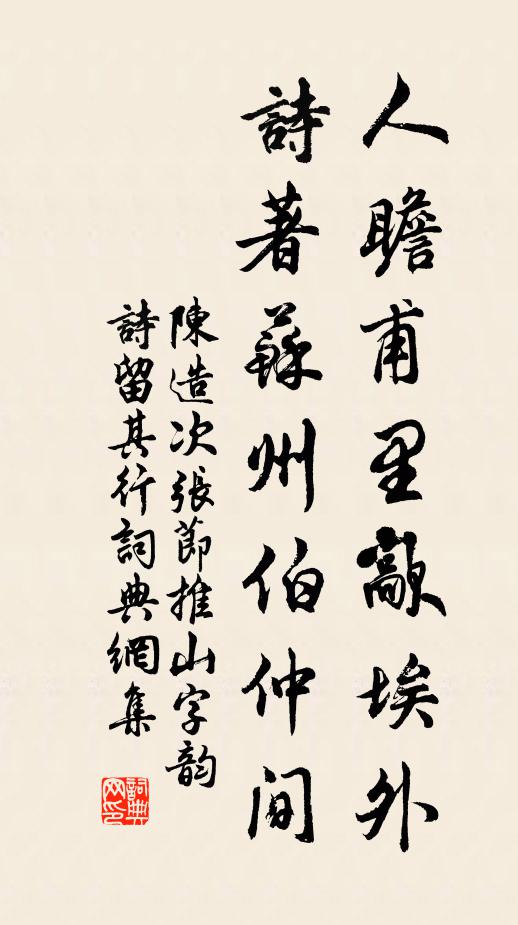 人瞻甫里歊埃外
詩著蘇州伯仲間
陳造次張節推山字韵
詩留其行詞典網集
詞典网印